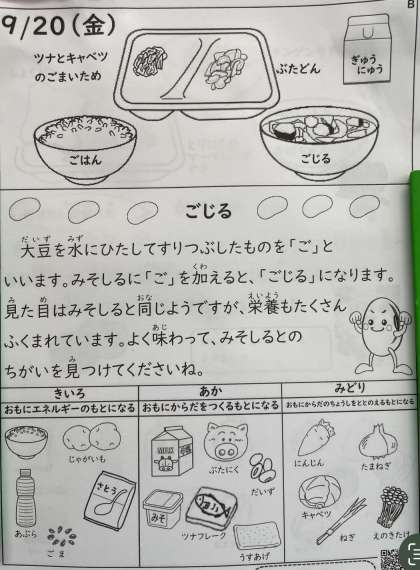 B
9/20(金)
ツナとキャベツ
のごまいため
ぶたどん
ぎゅう
にゅう
ごはん
ごじる
ごじる
大豆を水にひたしてすりつぶしたものを「ご」と
いいます。みそしるに「ご」を加えると、「ごじる」になります。
見た目はみそしると同じようですが、栄養もたくさん
ふくまれています。よく味わって、みそしるとの
ちがいを見つけてくださいね。
きいろ
おもにエネルギーのもとになる
じゃがいも
さとう
あぶら
ごま
あか
おもにからだをつくるもとになる
ぶたにく
だいず
みそ
ツナフレーク
うすあげ
みどり
おもにからだのちょうしをととのえるもとになる
にんじん
たまねぎ
キャベツ
ねぎ
えのきたけ